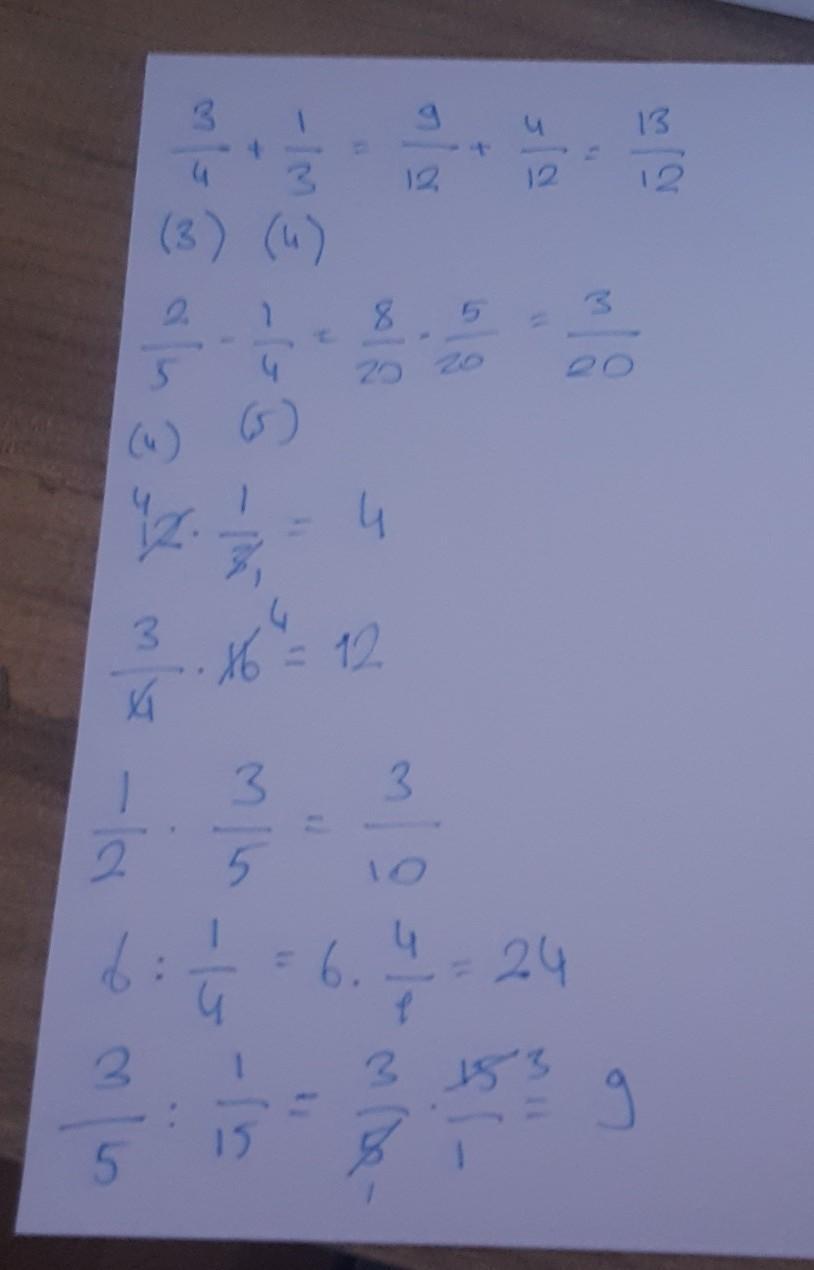 3/4 + 1/3 = 9/12 + 4/12 = 13/12
(3) (4)
2/5 - 1/4 = 8/20 - 5/20 = 3/20
(4) (5)
4 12 · 1/3 1 = 4
3/4 · 16 4 = 12
1/2 · 3/5 = 3/10
6 : 1/4 = 6 · 4/1 = 24
3/5 : 1/15 = 3/5 1 · 15/1 3 = 9